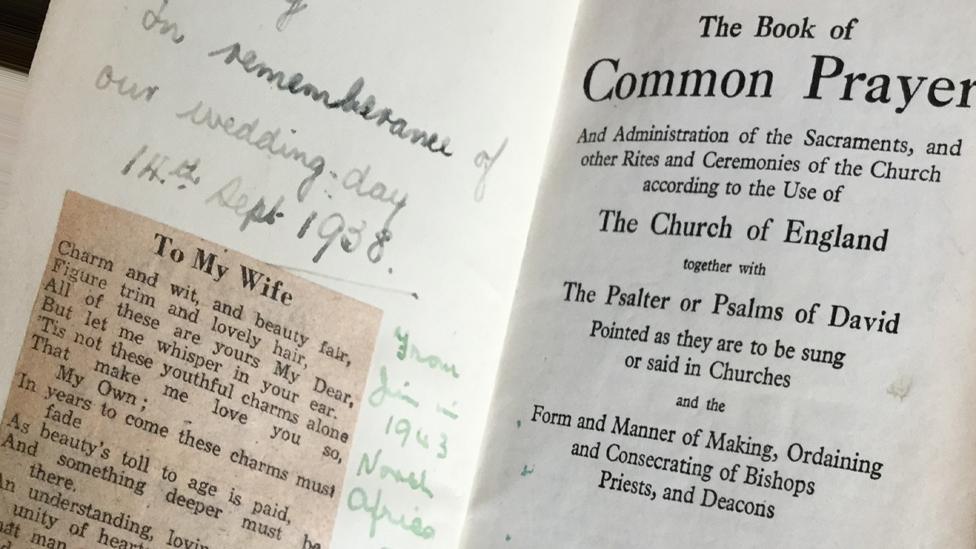 In rememberance of
our wedding-day
14th Sept 1938.
To My Wife
Charm and wit, and beauty fair,
Figure trim and lovely hair,
All of these are yours My Dear,
But let me whisper in your ear.
'Tis not these youthful charms alone
That make me love you so,
My Own;
In years to come these charms must
fade
As beauty's toll to age is paid,
And something deeper must be
there.
An understanding, lovin
unity of heart
hat man
From
Jim in
1943
North
Africa
The Book of
Common Prayer
And Administration of the Sacraments, and
other Rites and Ceremonies of the Church
according to the Use of
The Church of England
together with
The Psalter or Psalms of David
Pointed as they are to be sung
or said in Churches
and the
Form and Manner of Making, Ordaining
and Consecrating of Bishops
Priests, and Deacons